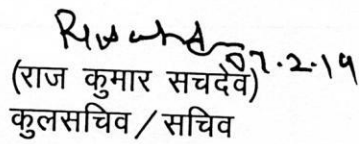 07.2.19
(राज कुमार सचदेव)
कुलसचिव / सचिव